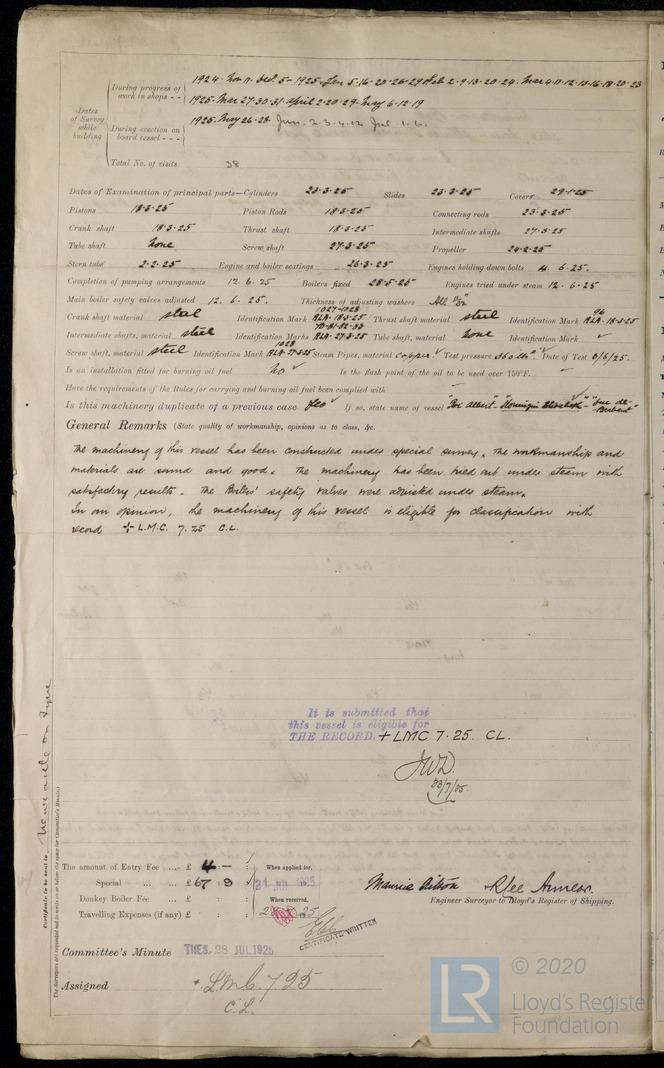 Dates of Survey while building
During progress of work in shops - - 1924. Nov 11. Dec. 5 - 1925. Jan 5.16.20.26.29 Feb 2.9.13.20.24. Mar 4.11.12.13.16.18.20.23
1925. Mar 27.30.31. April 2.20.29. May 6.12.19
During erection on board vessel - - - 1925. May 26.28. Jun. 2.3.4.12 Jul. 1.6.
Total No. of visits 38
Dates of Examination of principal parts—Cylinders 23-3-25 Slides 23-3-25 Covers 29-1-25
Pistons 18-3-25 Piston Rods 18-3-25 Connecting rods 23-3-25
Crank shaft 18-3-25 Thrust shaft 18-3-25 Intermediate shafts 27-3-25
Tube shaft None Screw shaft 27-3-25 Propeller 24-2-25
Stern tube 2-2-25 Engine and boiler seatings 26-3-25 Engines holding down bolts 4. 6.25.
Completion of pumping arrangements 12. 6. 25 Boilers fixed 28-5-25 Engines tried under steam 12. 6. 25
Main boiler safety valves adjusted 12. 6. 25. Thickness of adjusting washers All
Crank shaft material steel Identification Mark 1027-1028 RLA. 18-3-25 Thrust shaft material steel Identification Mark 96 RLA. 18-3-25
Intermediate shafts, material steel Identification Marks RLA. 27-3-25 Tube shaft, material None Identification Mark ✓
Screw shaft, material steel Identification Mark 1028 RLA 27-3-25 Steam Pipes, material copper. ✓ Test pressure 360 lbs. ✓ Date of Test 3/6/25.
Is an installation fitted for burning oil fuel No ✓ Is the flash point of the oil to be used over 150°F. —
Have the requirements of the Rules for carrying and burning oil fuel been complied with —
Is this machinery duplicate of a previous case Yes ✓ If so, state name of vessel "Roi Albert" "Koningin Elisabeth" - "Duc de Brabant"
General Remarks (State quality of workmanship, opinions as to class, &c.
The machinery of this vessel has been constructed under special survey. The workmanship and
materials are sound and good. The machinery has been tried out under steam with
satisfactory results. The Boilers' safety valves were adjusted under steam.
In our opinion, the machinery of this vessel is eligible for classification with
record + L.M.C. 7. 25 C.L.
It is submitted that
this vessel is eligible for
THE RECORD. + LMC 7.25. CL.
JWD.
23/7/25
Newcastle on Tyne
Certificate to be sent to
The Surveyors are requested not to write on or below the space for Committee's Minute.
The amount of Entry Fee ... £ 4 : — : When applied for,
Special ... ... £ 67 : 9 : 21 JUL 1925
Donkey Boiler Fee ... £ : : When received,
Travelling Expenses (if any) £ : :
CERTIFICATE WRITTEN
Maurice Aitson R Lee Amess.
Engineer Surveyor to Lloyd's Register of Shipping.
Committee's Minute TUES. 28 JUL 1925
Assigned + L.M.C. 7 25
C.L.
LR © 2020
Lloyd's Register
Foundation